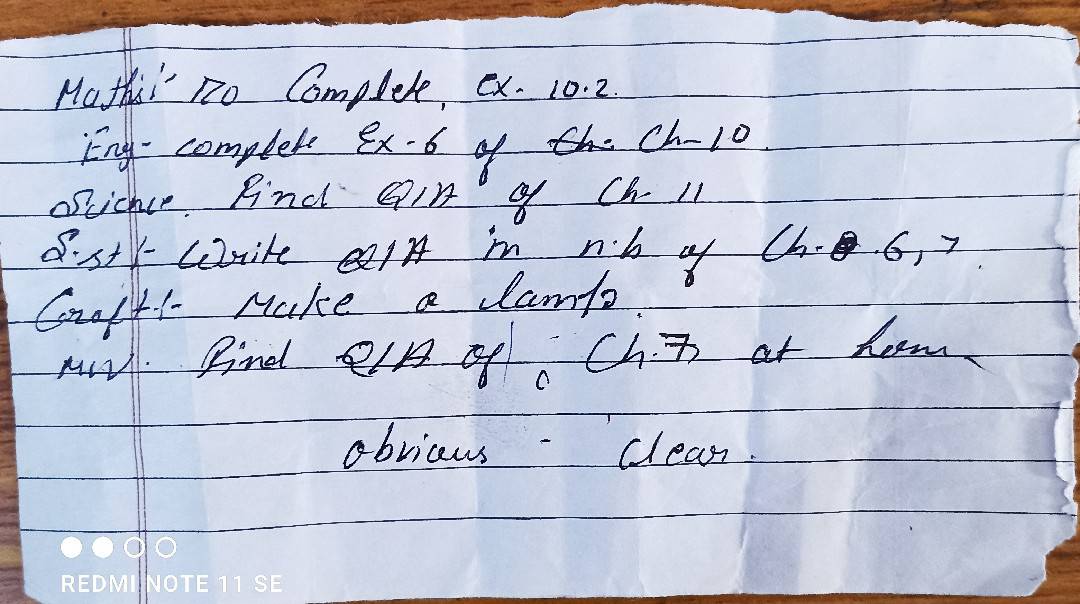 Maths:- Do Complete, Ex- 10.2.
Eng- complete Ex-6 of Ch-10.
Science. Find Q/A of Ch- 11
S.st:- Write Q/A in n.b of Ch- 6, 7
Craft:- Make a lamp.
Find Q/A of Ch.7 at hom
obvious - Clear.
REDMI NOTE 11 SE